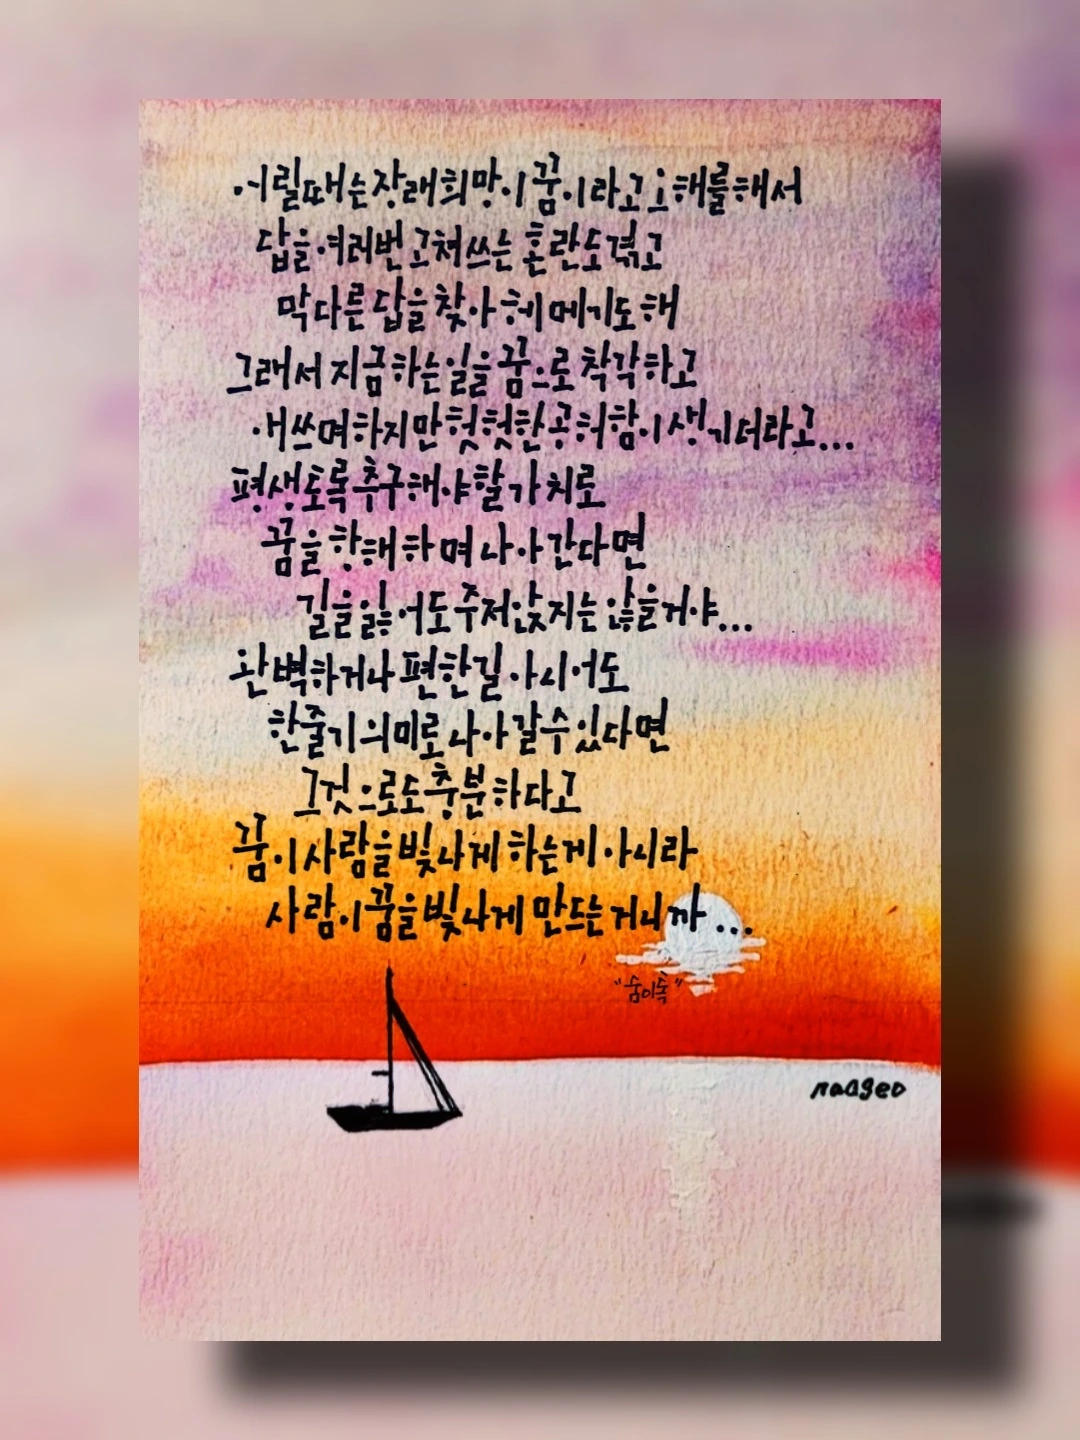 어릴때는장래희망이꿈이라고오해를해서
답을여러번고쳐쓰는 혼란도겪고
막다른 답을 찾아 헤메기도해
그래서 지금하는일을 꿈으로 착각하고
애쓰며하지만 헛헛한 공허함이 생기더라고...
평생토록 추구해야할 가치로
꿈을 향해 하며 나아간다면
길을 잃어도 주저앉지는 않을거야...
완벽하거나 편한길 아니어도
한줄기 의미로 나아갈수있다면
그것으로도 충분하다고
꿈이사람을 빛나게 하는게 아니라
사람이꿈을빛나게 만드는거니까...
"숨이톡"
naageo